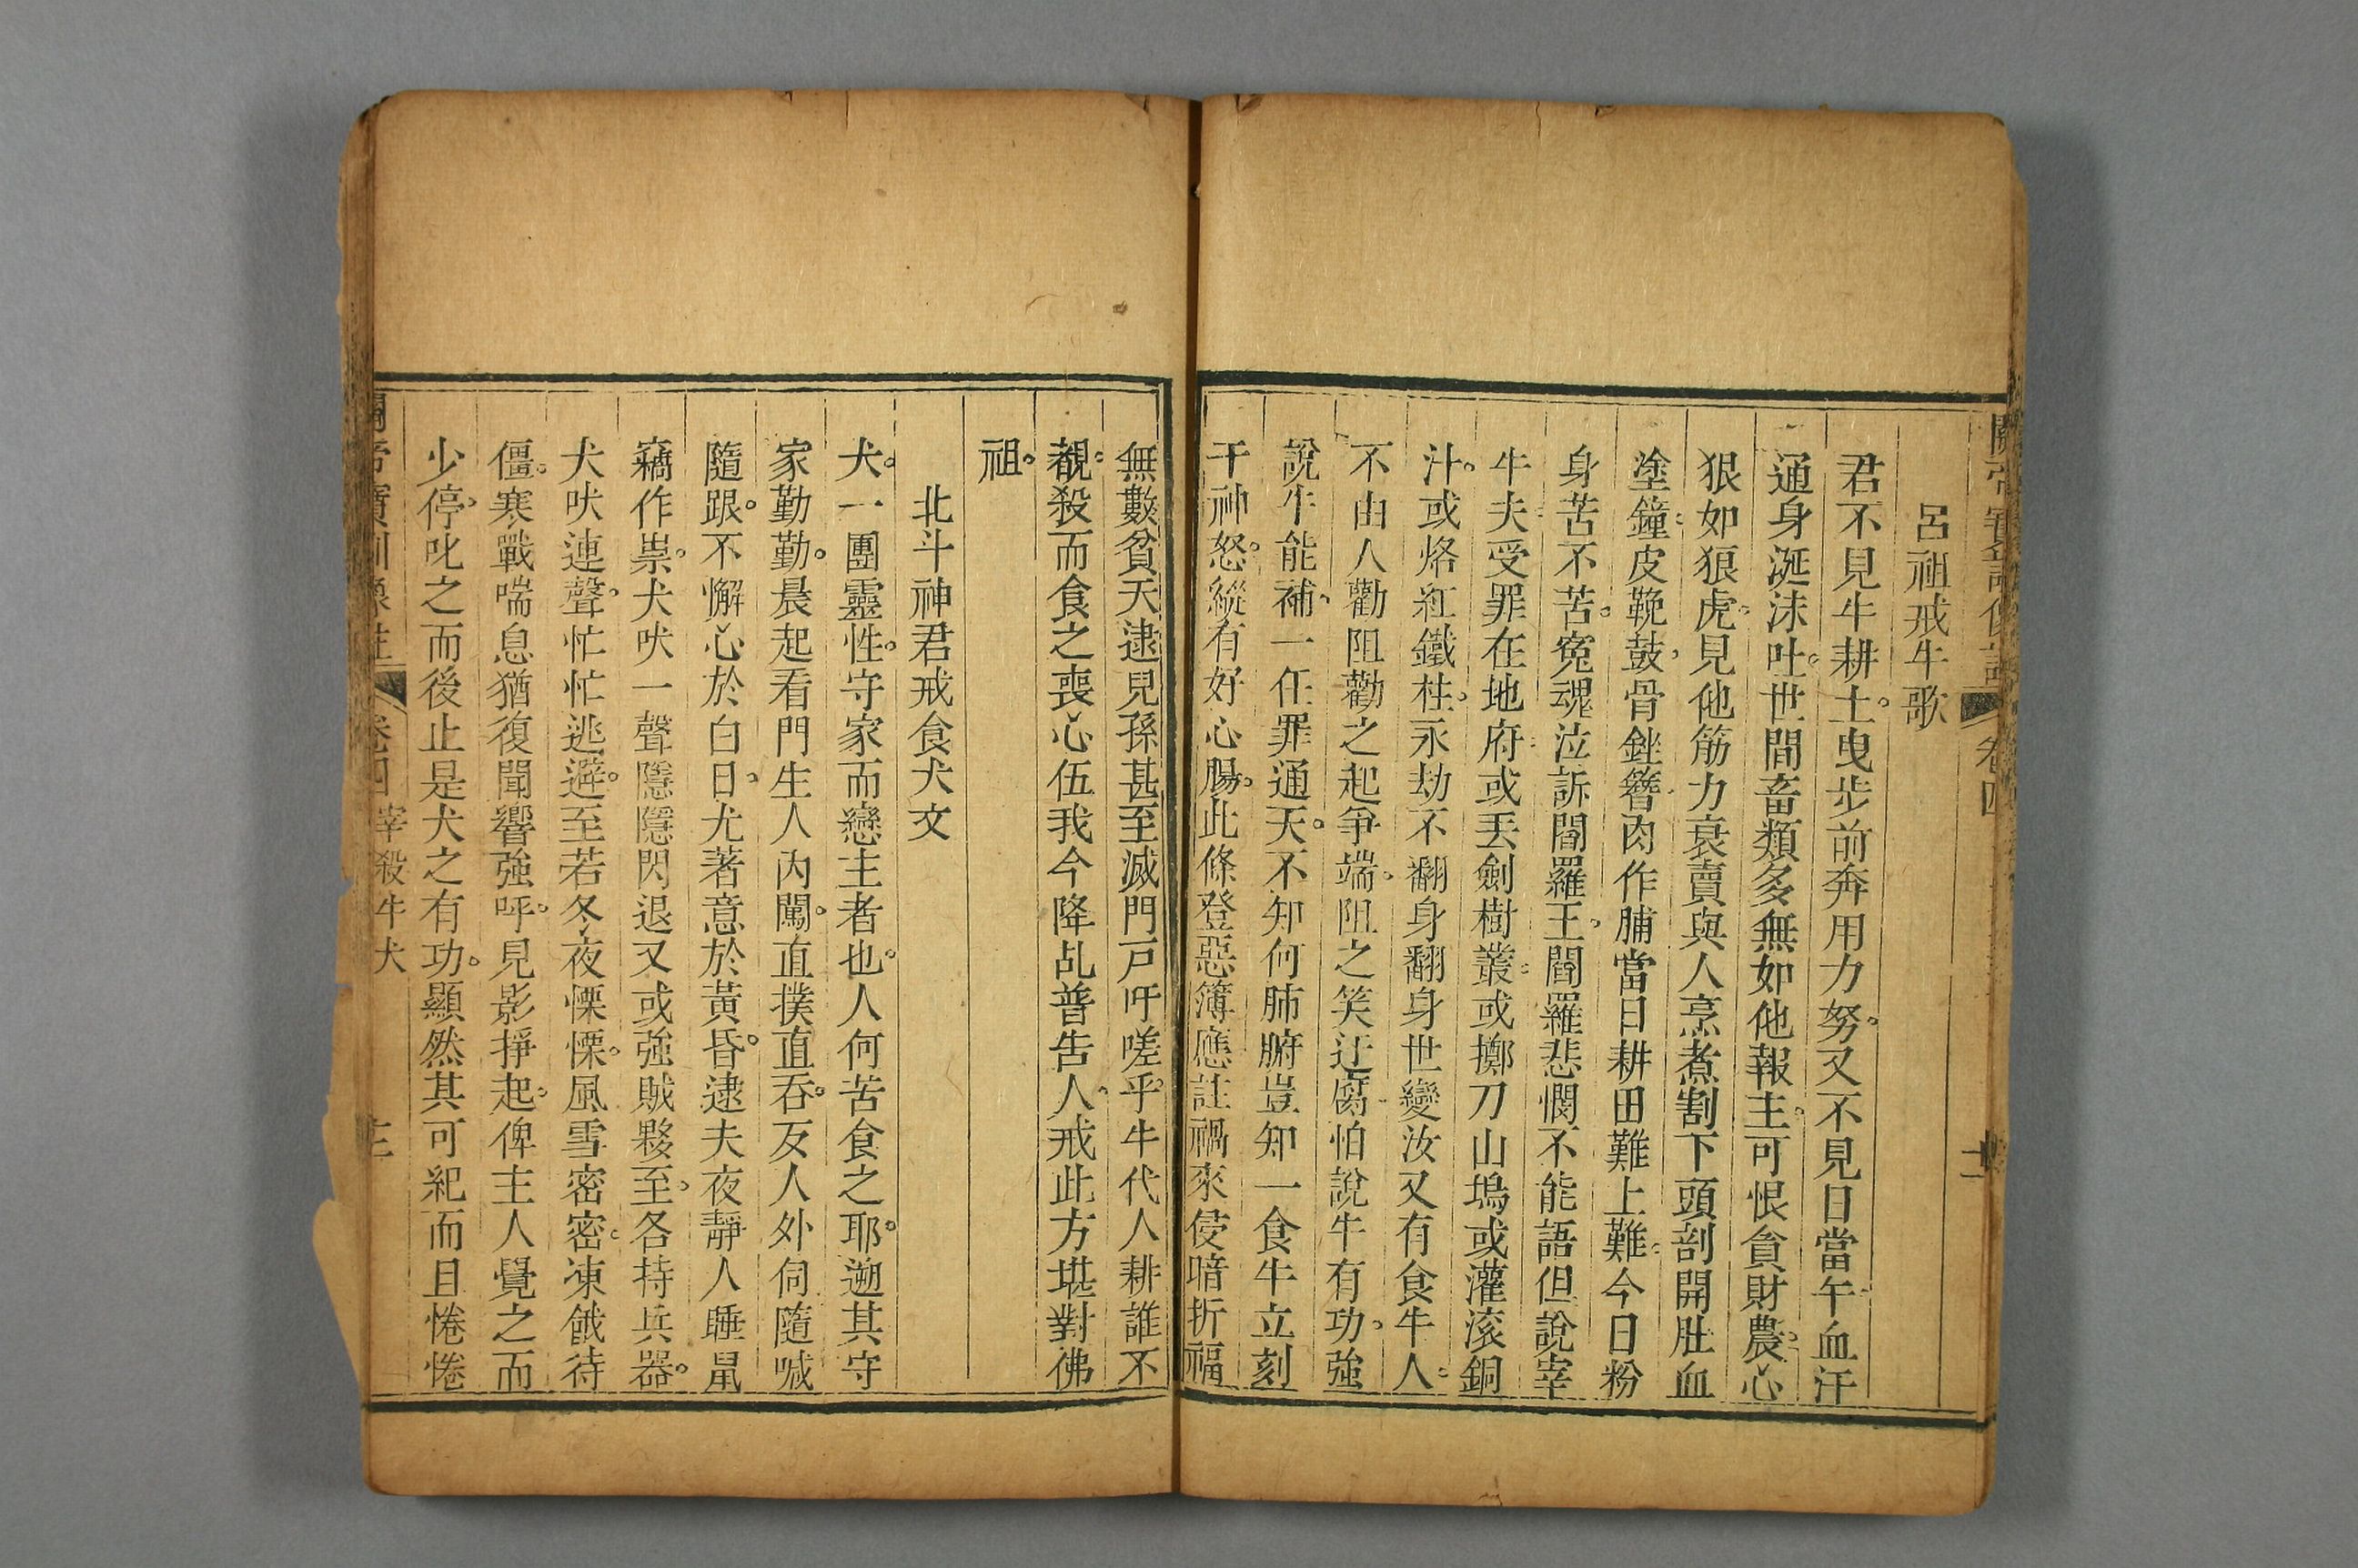 呂祖戒牛歌
君不見牛耕土。曳步前奔用力努。又不見日當午。血汗
通身涎沫吐。世間畜類多無如他報主。可恨貪財農。心
狠如狼虎。見他筋力衰賣與人烹煮割下頭剖開肚血
塗鐘。皮鞔鼓。骨銼簪。肉作脯當日耕田難上難。今日粉
身苦不苦。寃魂泣訴閻羅王。閻羅悲憫不能語但說宰
牛夫受罪在地府。或丟劍樹叢。或擲刀山塢或灌滚銅
汁。或烙紅鐵柱。永劫不翻身翻身世變汝又有食牛人。
不由人勸阻勸之起爭端。阻之笑迂腐怕說牛有功。強
說牛能補。一任罪通天。不知何肺腑豈知一食牛立刻
干神怒。縱有好心腸。此條登惡簿應註禍來侵暗折福
無數貧天逮兒孫甚至滅門戸吁嗟乎。牛代人耕誰不
覩。殺而食之喪心伍我今降乩普告人。戒此方堪對佛
祖。
北斗神君戒食犬文
犬。一團靈性。守家而戀主者也。人何苦食之耶。遡其守
家勤勤。晨起看門生人內闖。直撲直吞。反人外伺隨喊
隨跟。不懈心於白日。尤著意於黃昏。逮夫夜靜人睡鼠
竊作祟。犬吠一聲隱隱閃退又或強賊夥至。各持兵器。
犬吠連聲。忙忙逃避。至若冬夜慄慄。風雪密密。凍餓待
僵。寒戰喘息猶復聞響強呼。見影掙起。俾主人覺之而
少停。叱之而後止是犬之有功。顯然其可紀而且惓惓
卷四 宰殺牛犬